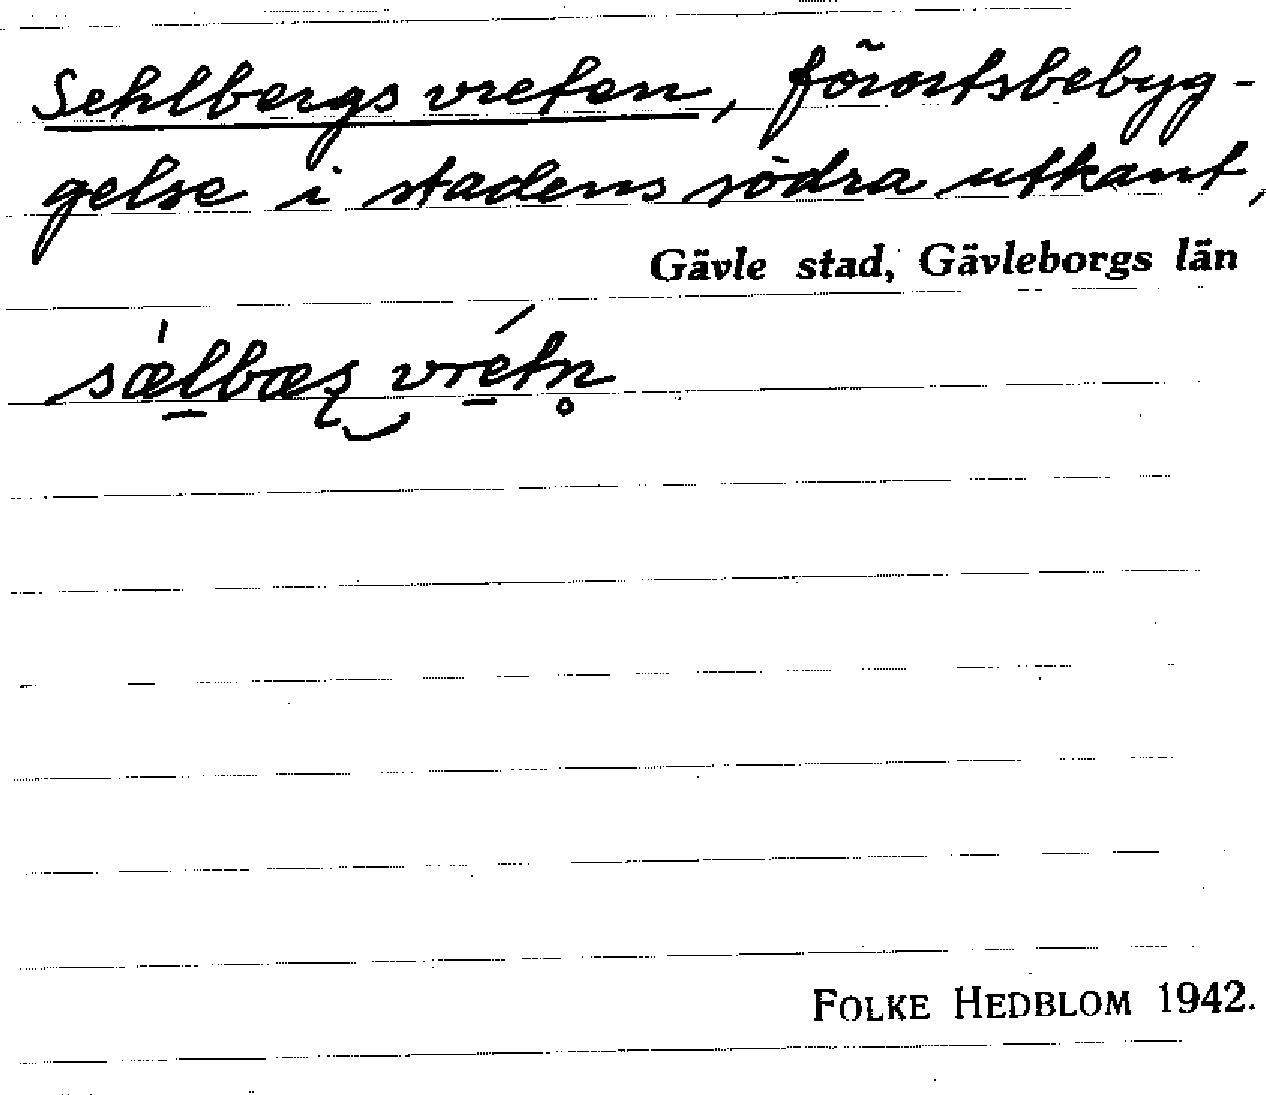 Sehlbergsvreten, förortsbebyg-
gelse i stadens södra utkant,
Gävle stad, Gävleborgs län
FOLKE HEDBLOM 1942.